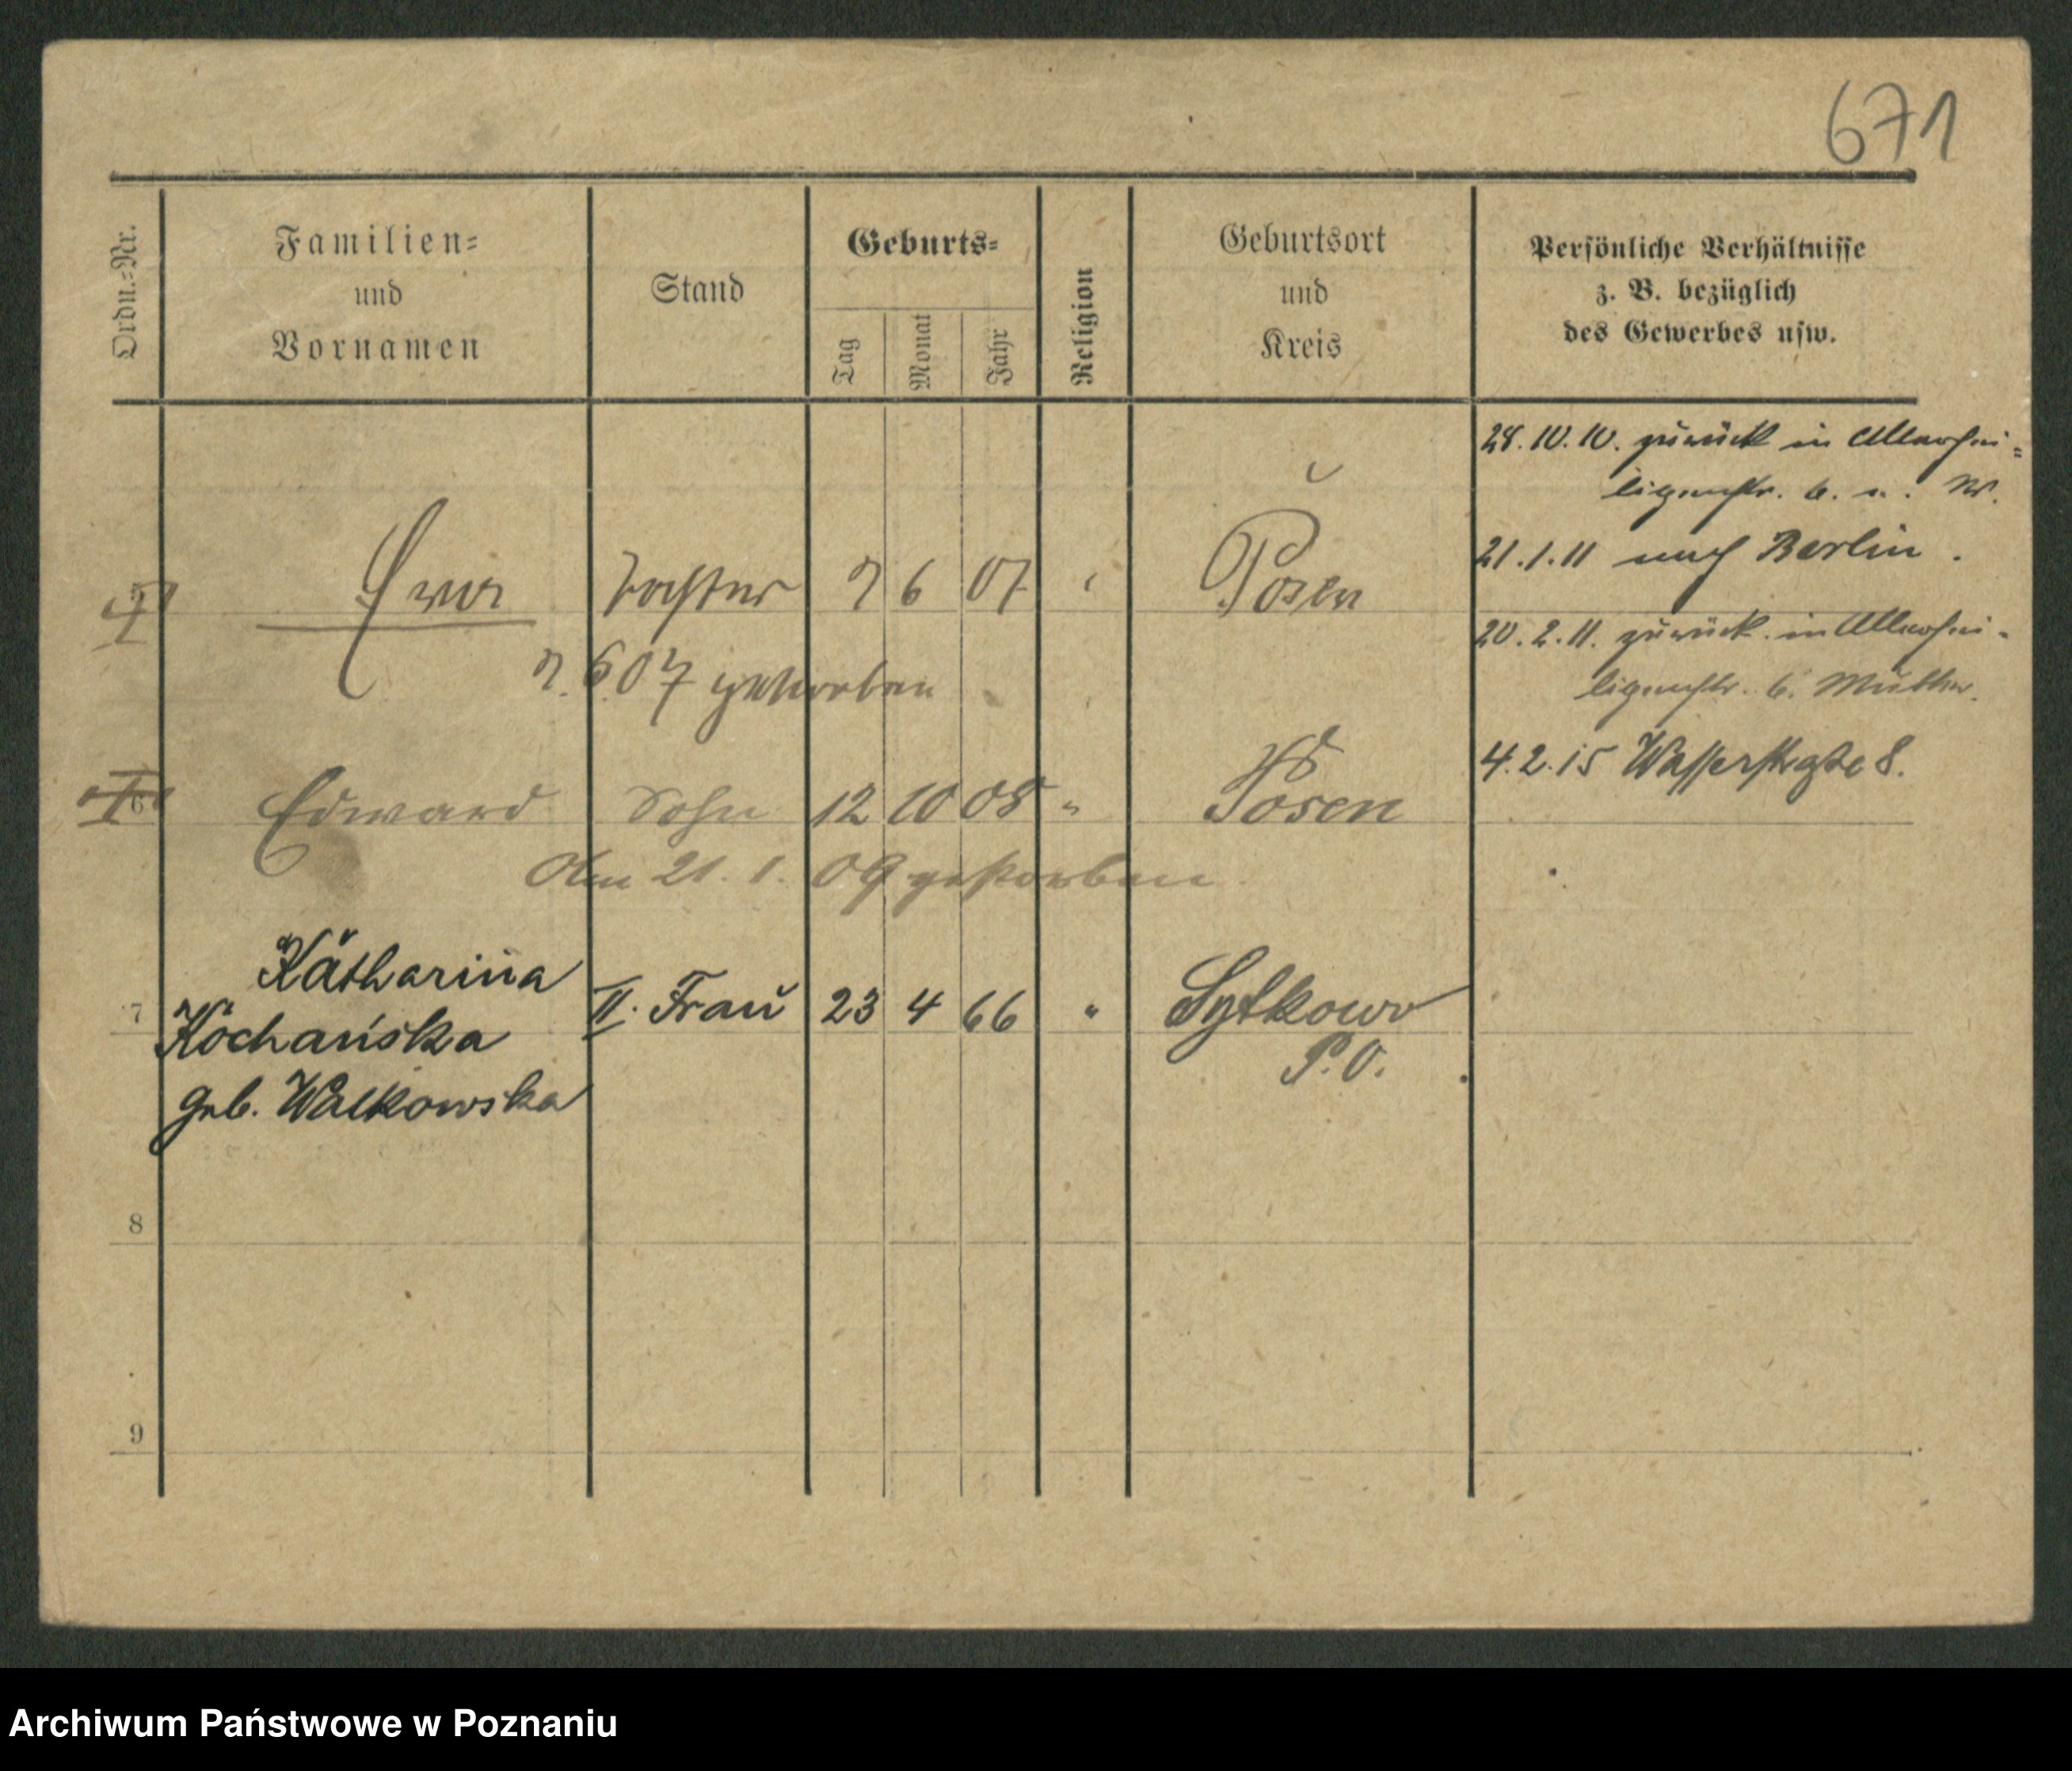 671
Ordn.-Nr.
Familien-
und
Vornamen
Stand
Geburts-
Tag
Monat
Jahr
Religion
Geburtsort
und
Kreis
Persönliche Verhältnisse
z. B. bezüglich
des Gewerbes usw.
28.10.10. zurück in Allerhei-
ligenstr. 6. u. W.
21.1.11 nach Berlin.
20.2.11. zurück in Allerhei-
ligenstr. 6. Mutter.
4.2.15 Wasserstraße 8.
Ewa Tochter 7 6 07 Posen
7. 6 07 gestorben
6 Edward Sohn 12 10 08 " Posen
Am 21. 1. 09 gestorben
Katharina
7 Kochańska II. Frau 23 4 66 " Sytkowo
P.O.
geb. Walkowska
8
9
Archiwum Państwowe w Poznaniu